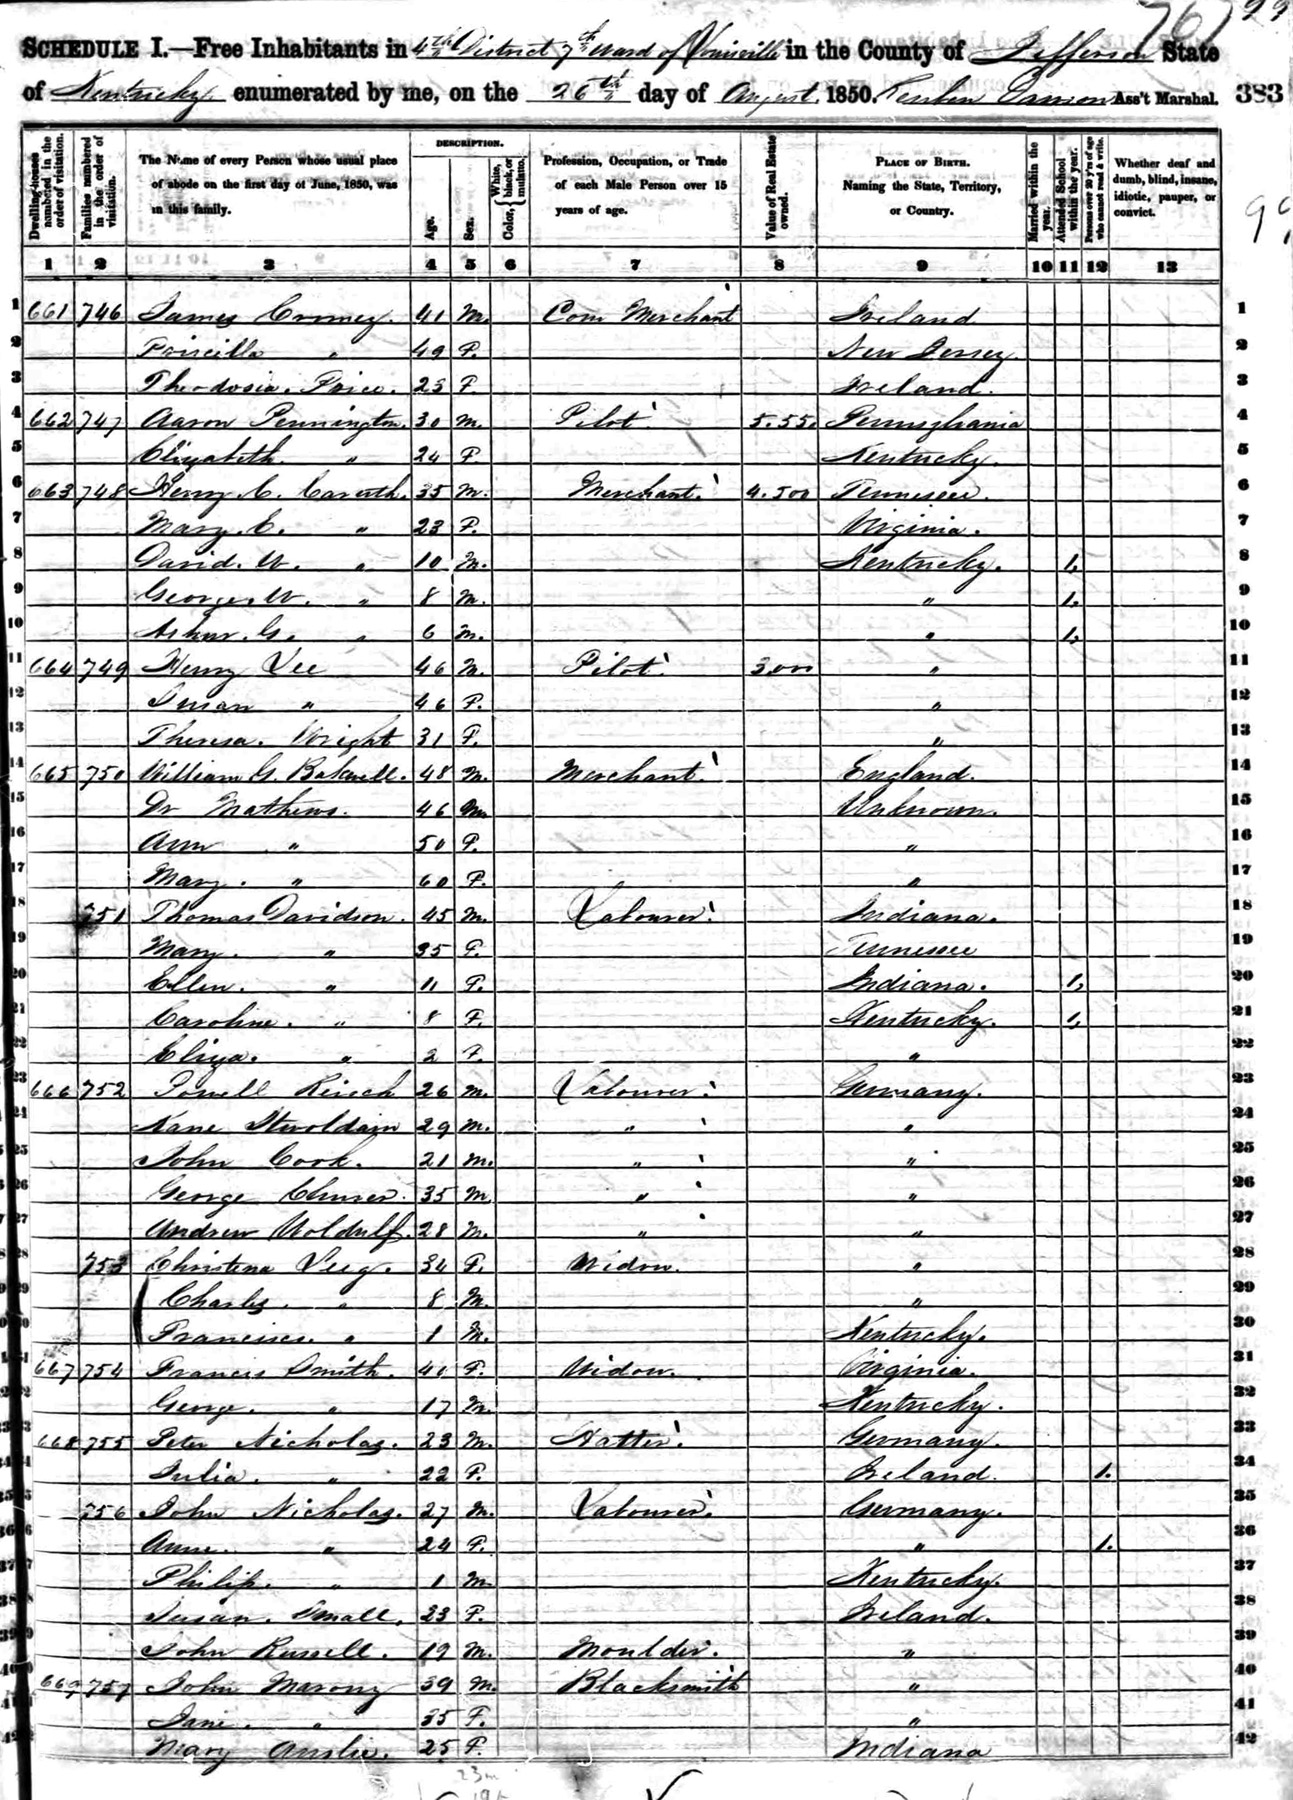 767 99
SCHEDULE I.—Free Inhabitants in 4th District 7th Ward of Louisville in the County of Jefferson State
of Kentucky enumerated by me, on the 26th day of August 1850. Reuben Dawson Ass't Marshal. 383
Dwelling-houses numbered in the order of visitation.
Families numbered in the order of visitation.
The Name of every Person whose usual place of abode on the first day of June, 1850, was in this family.
DESCRIPTION.
Age.
Sex.
Color, White, black, or mulatto.
Profession, Occupation, or Trade of each Male Person over 15 years of age.
Value of Real Estate owned.
PLACE OF BIRTH. Naming the State, Territory, or Country.
Married within the year.
Attended School within the year.
Persons over 20 y'rs of age who cannot read & write.
Whether deaf and dumb, blind, insane, idiotic, pauper, or convict.
1 2 3 4 5 6 7 8 9 10 11 12 13
1 661 746 James Cromey. 41 M. Com Merchant Ireland 1
2 Priscilla " 49 F. New Jersey 2
3 Theodosia. Price. 23 F. Ireland. 3
4 662 747 Aaron Pennington. 30 M. Pilot 5.550 Pennsylvania 4
5 Elizabeth. " 24 F. Kentucky. 5
6 663 748 Henry C. Caruth. 35 M. Merchant. 4.500 Tennessee. 6
7 Mary. E. " 23 F. Virginia. 7
8 David. W. " 10 M. Kentucky. 1. 8
9 George. W. " 8 M. " 1. 9
10 Arthur. G. " 6 M. " 1. 10
11 664 749 Henry Lee 46 M. Pilot 3.000 " 11
12 Susan " 46 F. " 12
13 Theresa. Wright 31 F. " 13
14 665 750 William G. Bakewell. 48 M. Merchant England. 14
15 Dr Mathews. 46 M. Unknown. 15
16 Ann " 50 F. " 16
17 Mary. " 60 F. " 17
18 751 Thomas Davidson. 45 M. Labourer Indiana. 18
19 Mary. " 35 F. Tennessee 19
20 Ellen. " 11 F. Indiana. 1. 20
21 Caroline. " 8 F. Kentucky. 1. 21
22 Eliza. " 2 F. " 22
23 666 752 Powell 26 M. Labourer Germany. 23
24 29 M. " " 24
25 John Cook. 21 M. " " 25
26 George 35 M " " 26
27 Andrew 28 M. " " 27
28 753 Christena 34 F. Widow. " 28
29 Charles. " 8 M. " 29
30 Francisco. " 1 M. Kentucky. 30
31 667 754 Francis Smith. 40 F. Widow. Virginia. 31
32 George. " 17 M. Kentucky. 32
33 668 755 Peter Nicholas. 23 M. Hatter Germany. 33
34 Julia. " 22 F. Ireland. 1. 34
35 756 John Nicholas. 27 M. Labourer Germany. 35
36 Anne. " 24 F. " 1. 36
37 Philip. " 1 M. Kentucky. 37
38 Susan. Small. 23 F. Ireland. 38
39 John Russell. 19 M. Moulder. " 39
40 669 757 John Marony 39 M. Blacksmith " 40
41 Jane. " 35 F. " 41
42 Mary Anslie. 25 F. Indiana 42
23 m
19 f